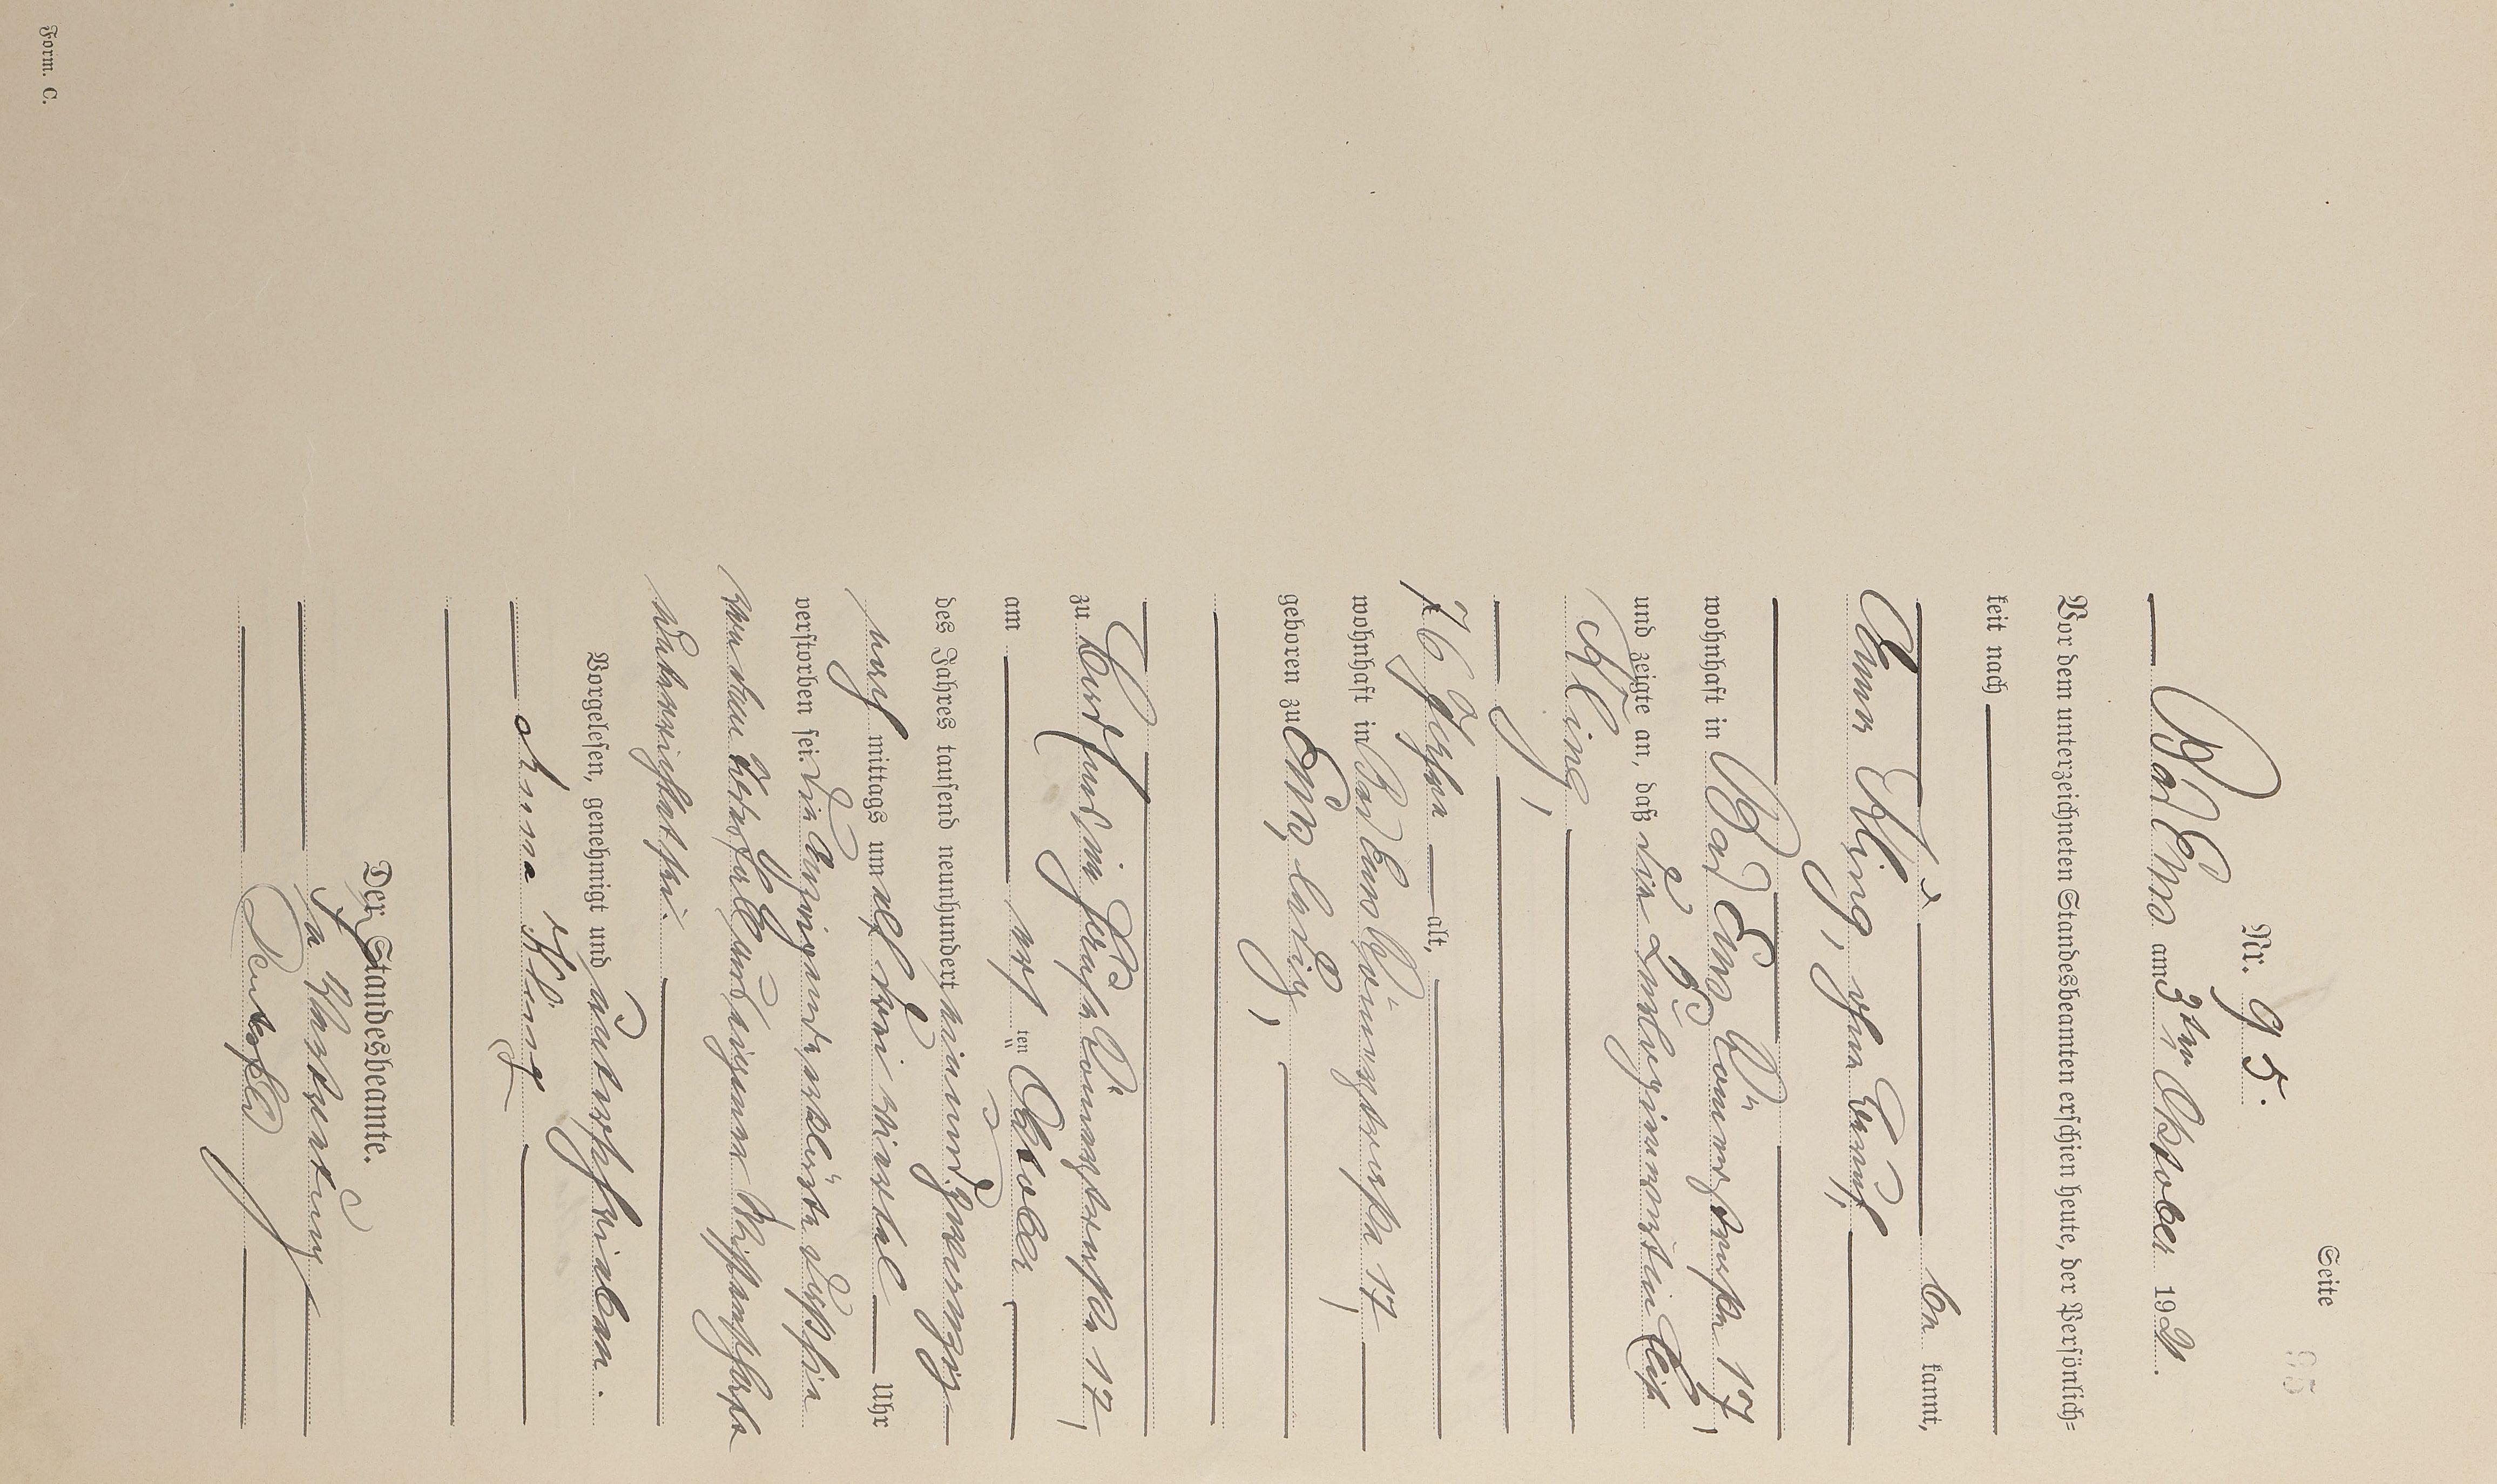 Seite 95
Nr. 95.
Bad Ems am 3ten Oktober 1921.
Vor dem unterzeichneten Standesbeamten erschien heute, der Persönlich=
keit nach
be kannt,
Anna Kling, ohne Beruf,
wohnhaft in Bad Ems Römerstraße 17,
und zeigte an, daß die
Kling,
76 Jahre alt,
wohnhaft in Bad Ems Römerstraße 17,
geboren zu Ems, ledig,
zu Bad Ems Römerstraße 17,
am ten Oktober
des Jahres tausend neunhundert einundzwanzig
nach mittags um drei viertel Uhr
verstorben sei. Die Anzeigende erklärte daß sie
von dem Todesfall aus eigener Wissenschaft
unterrichtet sei.
Vorgelesen, genehmigt und unterschrieben.
Anna Kling
Der Standesbeamte.
In Vertretung